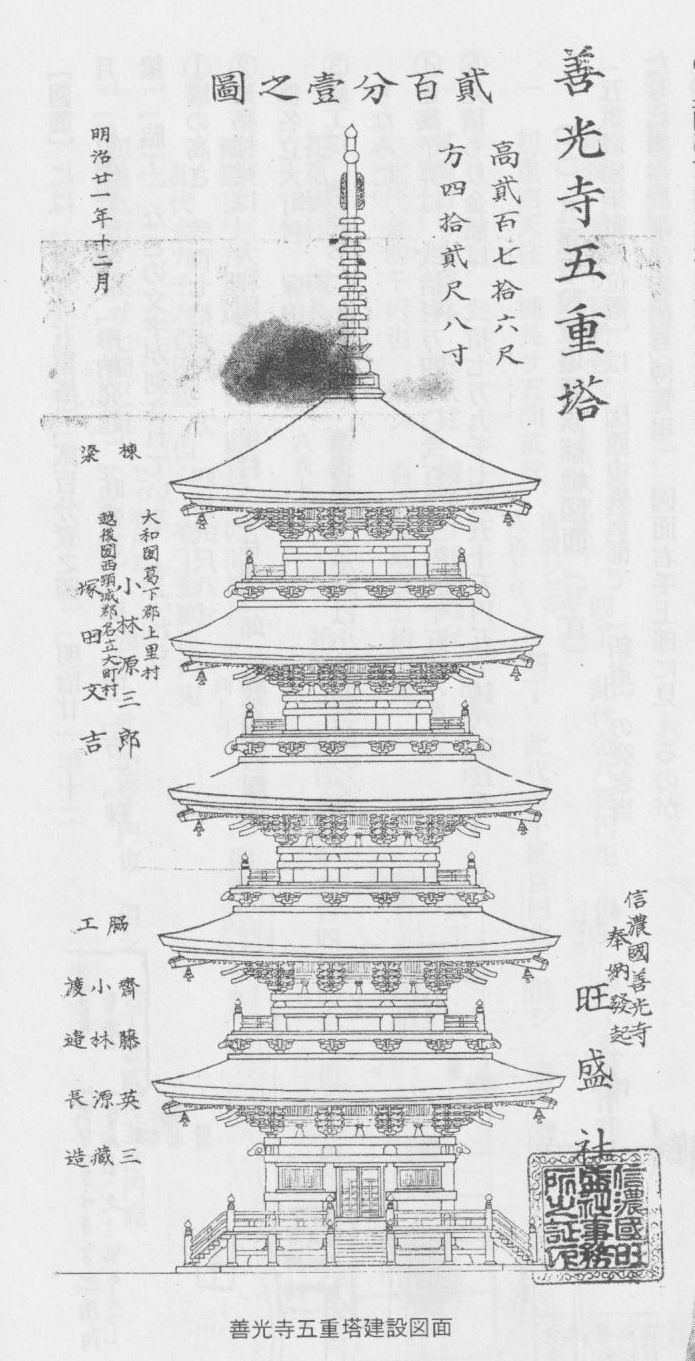 善光寺五重塔
貳百分壹之圖
高貳百七拾六尺
方四拾貳尺八寸
明治廿一年十二月
棟梁
大和国葛下郡上里村
小林原三郎
越後国西頸城郡名立大町村
塚田文吉
脇工
齋藤英三
小林源藏
渡邉長造
信濃國善光寺
奉納發起
旺盛社
信濃國旺
盛社事務
所之証
善光寺五重塔建設図面